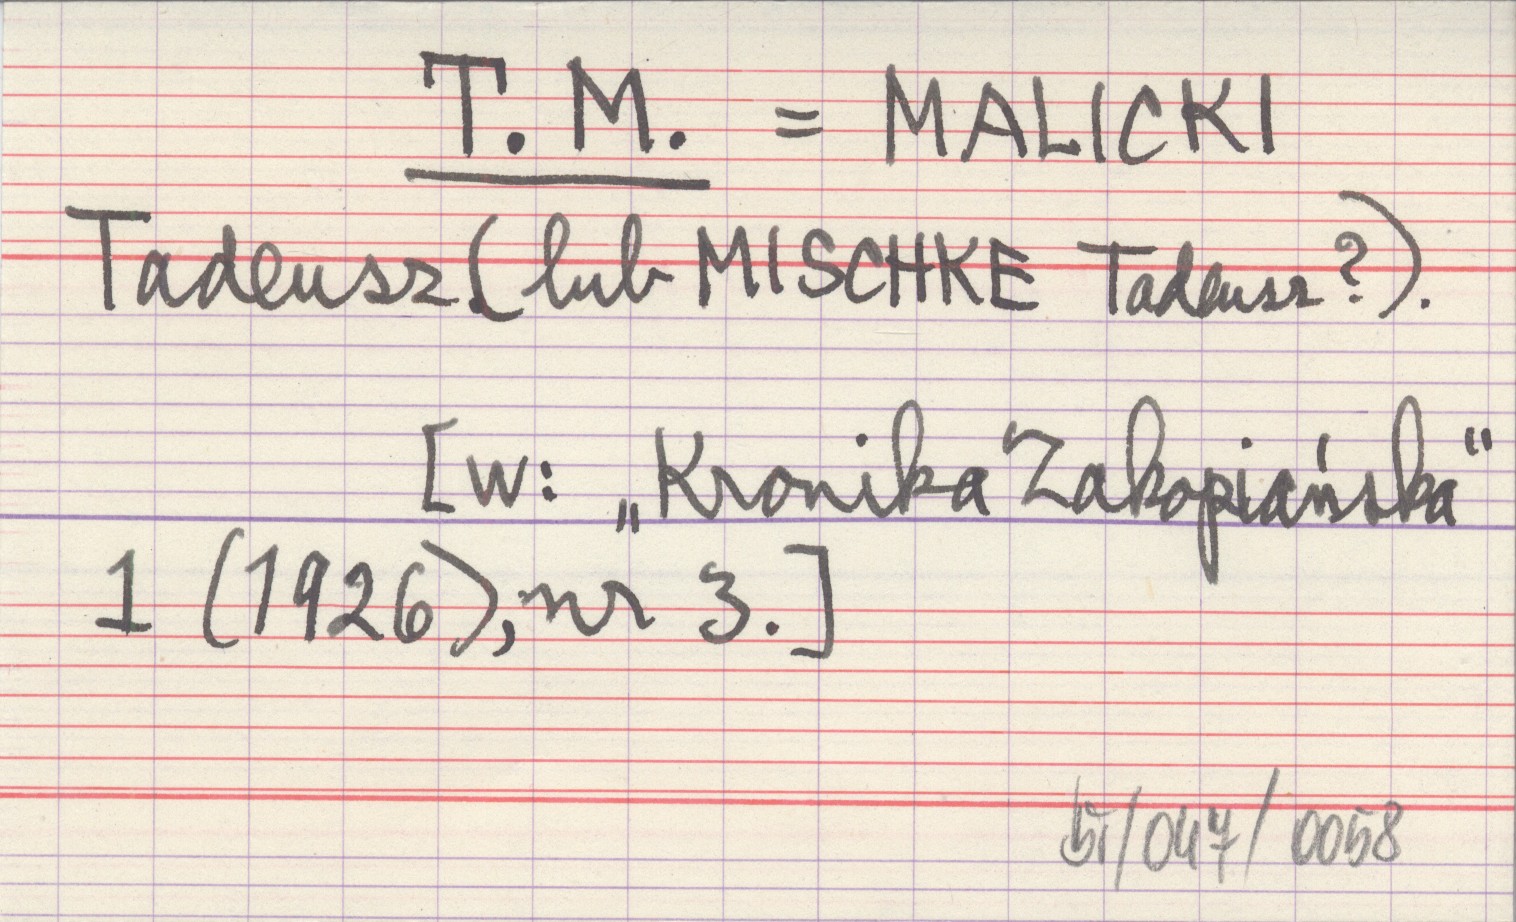 T. M. = MALICKI
Tadeusz. (lub MISCHKE Tadeusz?).
[w: „Kronika Zakopiańska"
1 (1926), nr 3.]
/047/0058